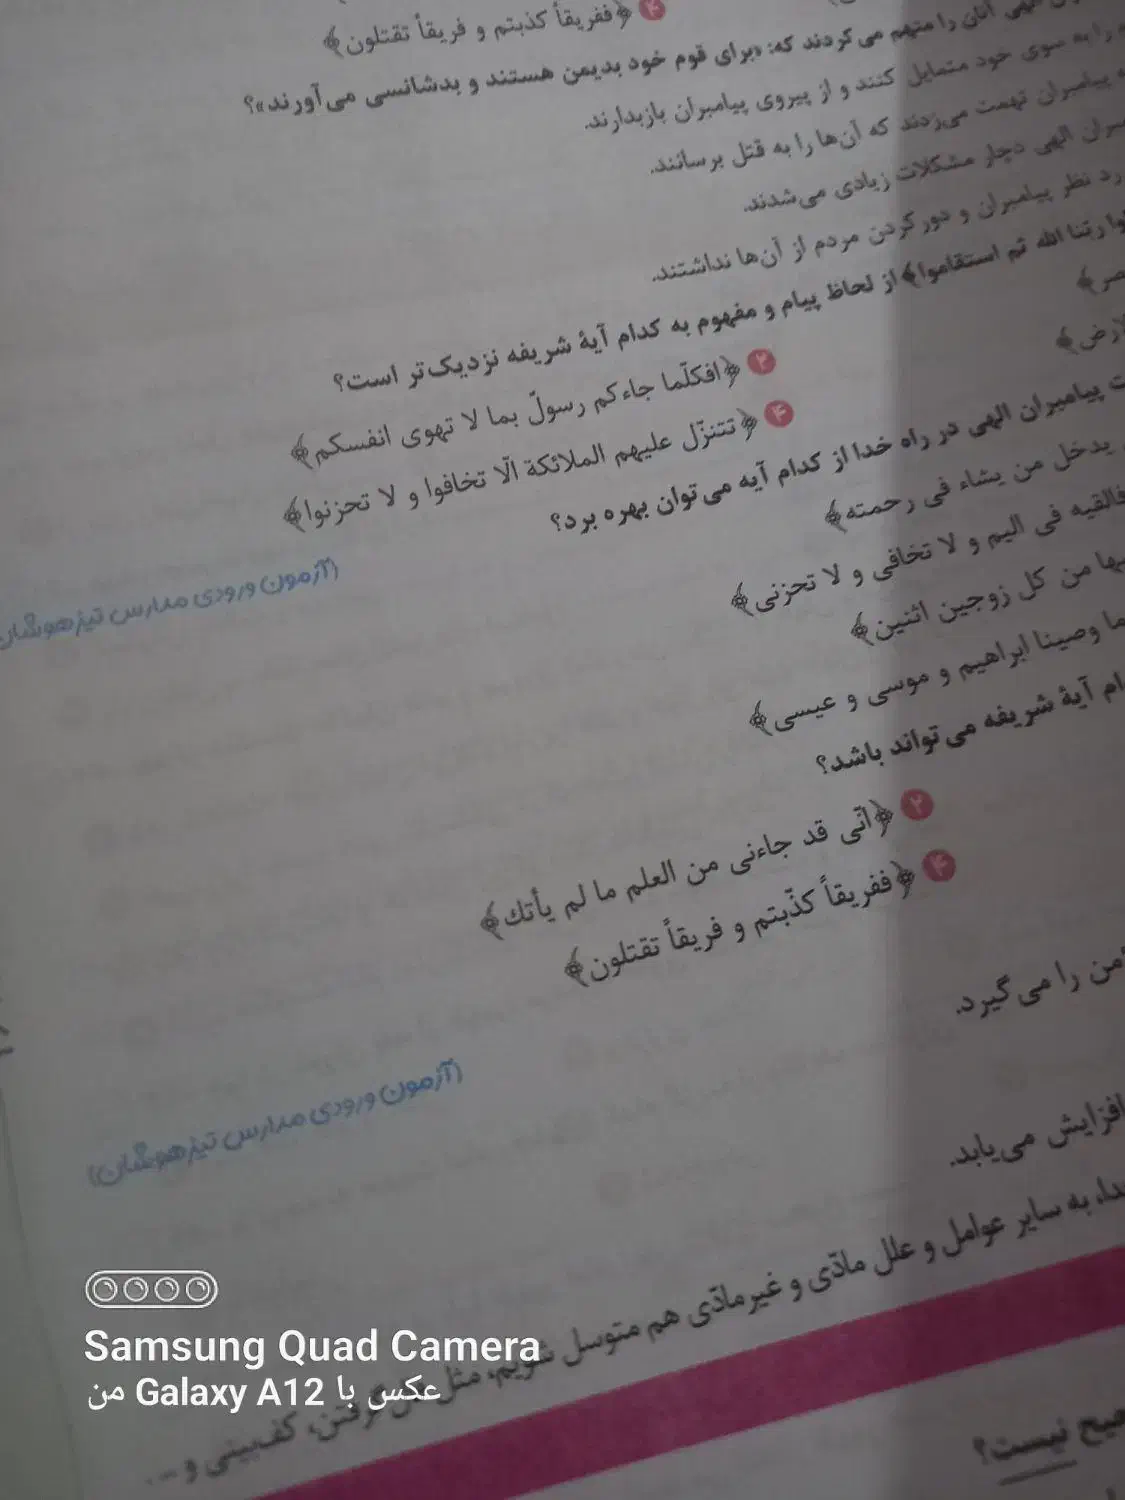 ۴ ﴿ففریقاً کذبتم و فریقاً تقتلون﴾
الهی آنان را متهم می‌کردند که: «برای قوم خود بدیمن هستند و بدشانسی می‌آورند»؟
را به سوی خود متمایل کنند و از پیروی پیامبران بازبدارند.
پیامبران تهمت می‌زدند که آن‌ها را به قتل برسانند.
الهی دچار مشکلات زیادی می‌شدند.
نظر پیامبران و دور کردن مردم از آن‌ها نداشتند.
ربّنا الله ثم استقاموا﴾ از لحاظ پیام و مفهوم به کدام آیهٔ شریفه نزدیک‌تر است؟
۲ ﴿افکلّما جاءکم رسولٌ بما لا تهوی انفسکم﴾
۴ ﴿تتنزّل علیهم الملائکة الّا تخافوا و لا تحزنوا﴾
پیامبران الهی در راه خدا از کدام آیه می‌توان بهره برد؟
(آزمون ورودی مدارس تیزهوشان
یدخل من یشاء فی رحمته﴾
فالقیه فی الیم و لا تخافی و لا تحزنی﴾
من کل زوجین اثنین﴾
وصینا ابراهیم و موسی و عیسی﴾
آیهٔ شریفه می‌تواند باشد؟
۲ ﴿انّی قد جاءنی من العلم ما لم یأتك﴾
۴ ﴿ففریقاً کذّبتم و فریقاً تقتلون﴾
را می‌گیرد.
(آزمون ورودی مدارس تیزهوشان)
افزایش می‌یابد.
به سایر عوامل و علل مادّی و غیرمادّی هم متوسل شویم، مثل فال گرفتن، کف‌بینی و ...
نیست؟
Samsung Quad Camera
عکس با Galaxy A12 من